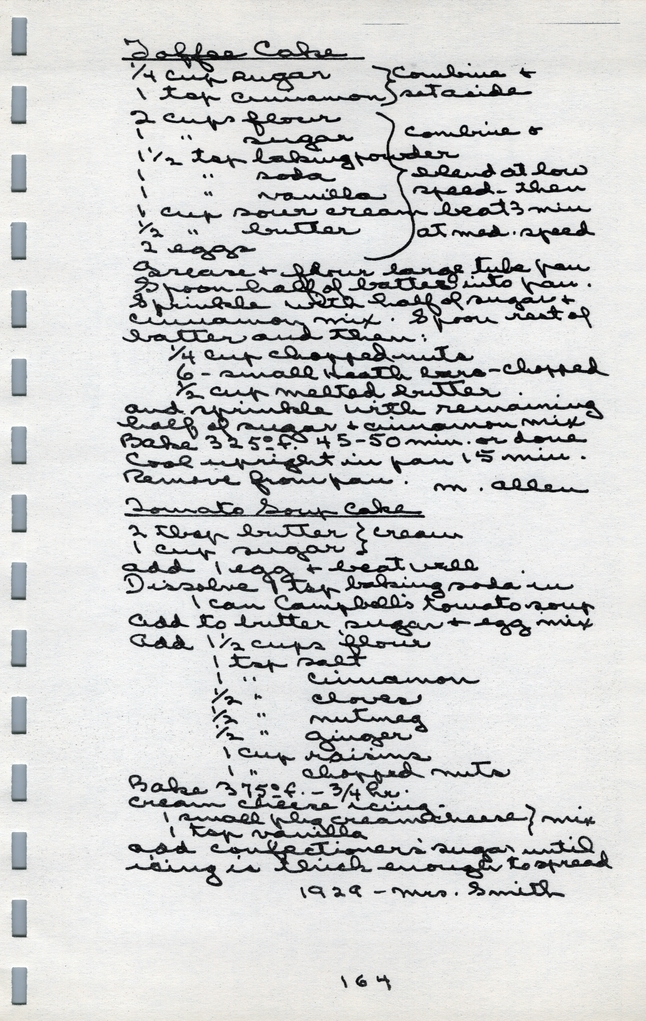 Toffee Cake
1/4 cup sugar } combine +
1 tsp cinnamon } set aside
2 cups flour
1 " sugar } combine +
1 1/2 tsp baking powder
1 " soda blend at low
1 " vanilla speed - then
1 cup sour cream beat 3 min
1/2 " butter at med. speed
2 eggs
Grease + flour large tube pan
Spoon half of batter into pan.
Sprinkle with half of sugar +
cinnamon mix. Spoon rest of
batter and then:
1/4 cup chopped nuts
6 - small Heath bars - chopped
1/2 cup melted butter
and sprinkle with remaining
half of sugar + cinnamon mix
Bake 325° f. 45-50 min. or done
Cool upright in pan 15 min.
Remove from pan. M. Allen
Tomato Soup Cake
2 tbsp butter } cream
1 cup sugar }
add 1 egg + beat well
Dissolve 1 tsp baking soda in
1 can Campbell's tomato soup
Add to butter sugar + egg mix
Add 1 1/2 cups flour
1 tsp salt
1 " cinnamon
1/2 " cloves
1/2 " nutmeg
1/2 " ginger
1 cup raisins
1 " chopped nuts
Bake 375° f. - 3/4 hr.
cream cheese icing.
1 small pkg cream cheese } mix
1 tsp vanilla
add confectioner's sugar until
icing is thick enough to spread
1929 - Mrs. Smith
164